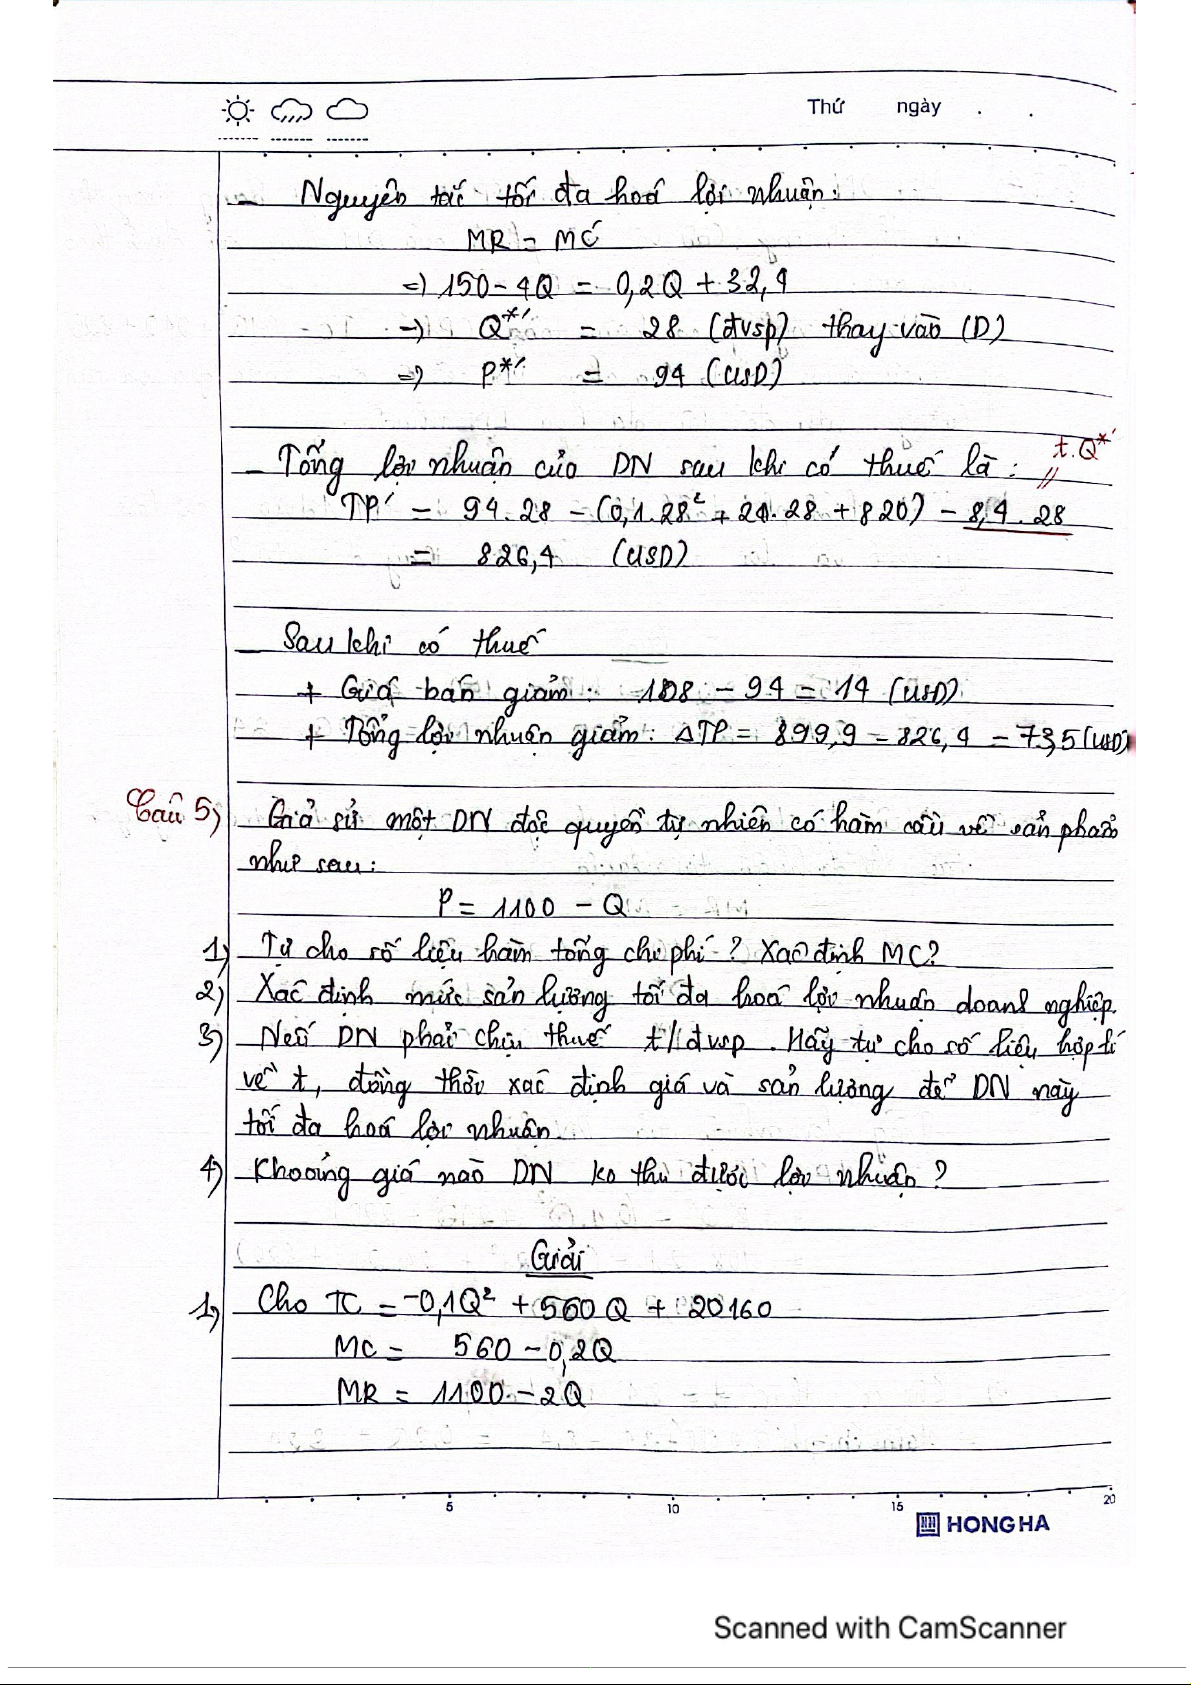 Thứ ngày . .
- Nguyên tắc tối đa hoá lợi nhuận:
MR = MC
=) 150 - 4Q = 0,2Q + 32,4
=) Q*' = 28 (đvsp) thay vào (D)
=) P*' = 94 (USD)
t.Q*'
- Tổng lợi nhuận của DN sau khi có thuế là:
TP' = 94.28 - (0,1.28² + 24.28 + 820) - 8,4.28
= 826,4 (USD)
- Sau khi có thuế
+ Giá bán giảm: 108 - 94 = 14 (USD)
+ Tổng lợi nhuận giảm: ΔTP = 899,9 - 826,4 = 73,5 (USD)
Câu 5) Giả sử một DN độc quyền tự nhiên có hàm cầu về sản phẩm
như sau:
P = 1100 - Q
1) Tự cho số liệu hàm tổng chi phí? Xác định MC?
2) Xác định mức sản lượng tối đa hoá lợi nhuận doanh nghiệp.
3) Nếu DN phải chịu thuế t/đvsp. Hãy tự cho số liệu hợp lí
về t, đồng thời xác định giá và sản lượng để DN này
tối đa hoá lợi nhuận.
4) Khoảng giá nào DN ko thu được lợi nhuận?
Giải
1) Cho TC = -0,1Q² + 560Q + 20160
MC = 560 - 0,2Q
MR = 1100 - 2Q
5 10 15 20
HONG HA
Scanned with CamScanner